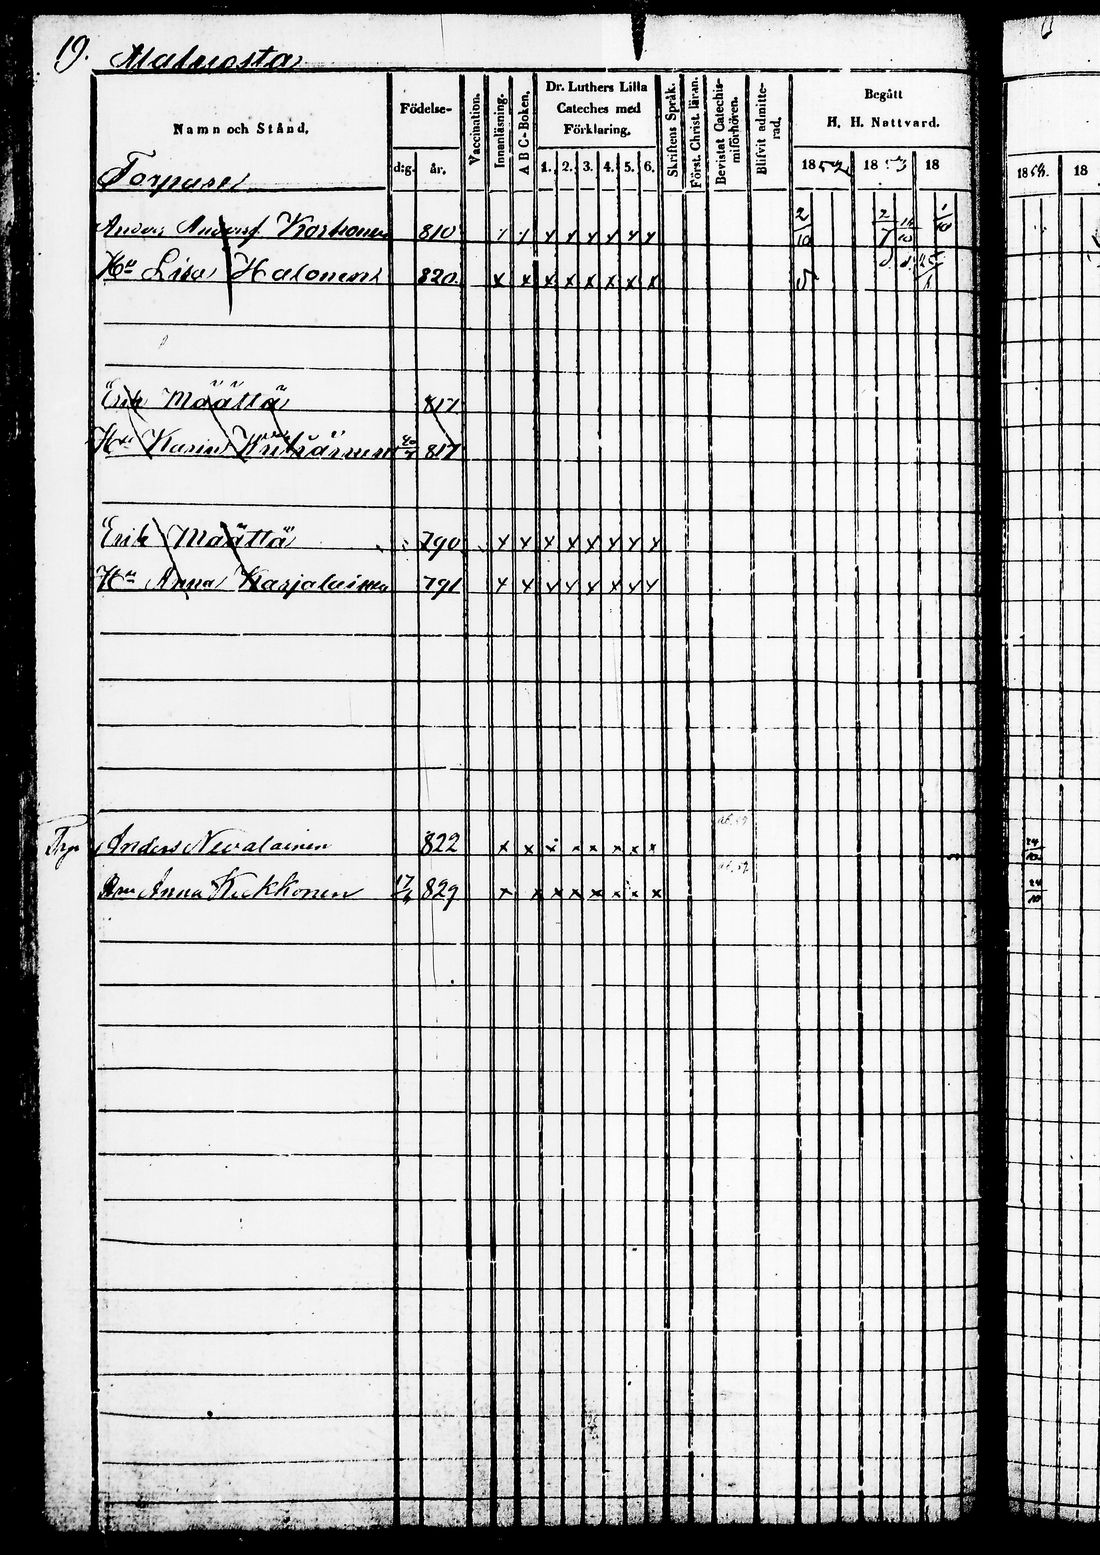 19. Malmosta
Namn och Stånd.
Födelse-
d:g. år.
Vaccination.
Innanläsning.
A B C-Boken.
Dr. Luthers Lilla
Cateches med
Förklaring.
1. 2. 3. 4. 5. 6.
Skriftens Språk.
Först. Christ. läran.
Bevistat Catechis-
miförhören.
Blifvit admitte-
rad.
Begått
H. H. Nattvard.
1852 1853 18
1858. 18
Torpare
Anders Andersf. Korhonen 810 2/10
Hu Lisa Halonen 820.
Erik Määttä 817
Hu Karin 817
Erik Määttä 790 x x x x x x x x
Hu Anna Karjalainen 791 x x x x x x x x
Trp Anders Nevalainen 822 x x x x x x x x 24/10
Hu Anna Kekkonen 829 x x x x x x x x 24/10